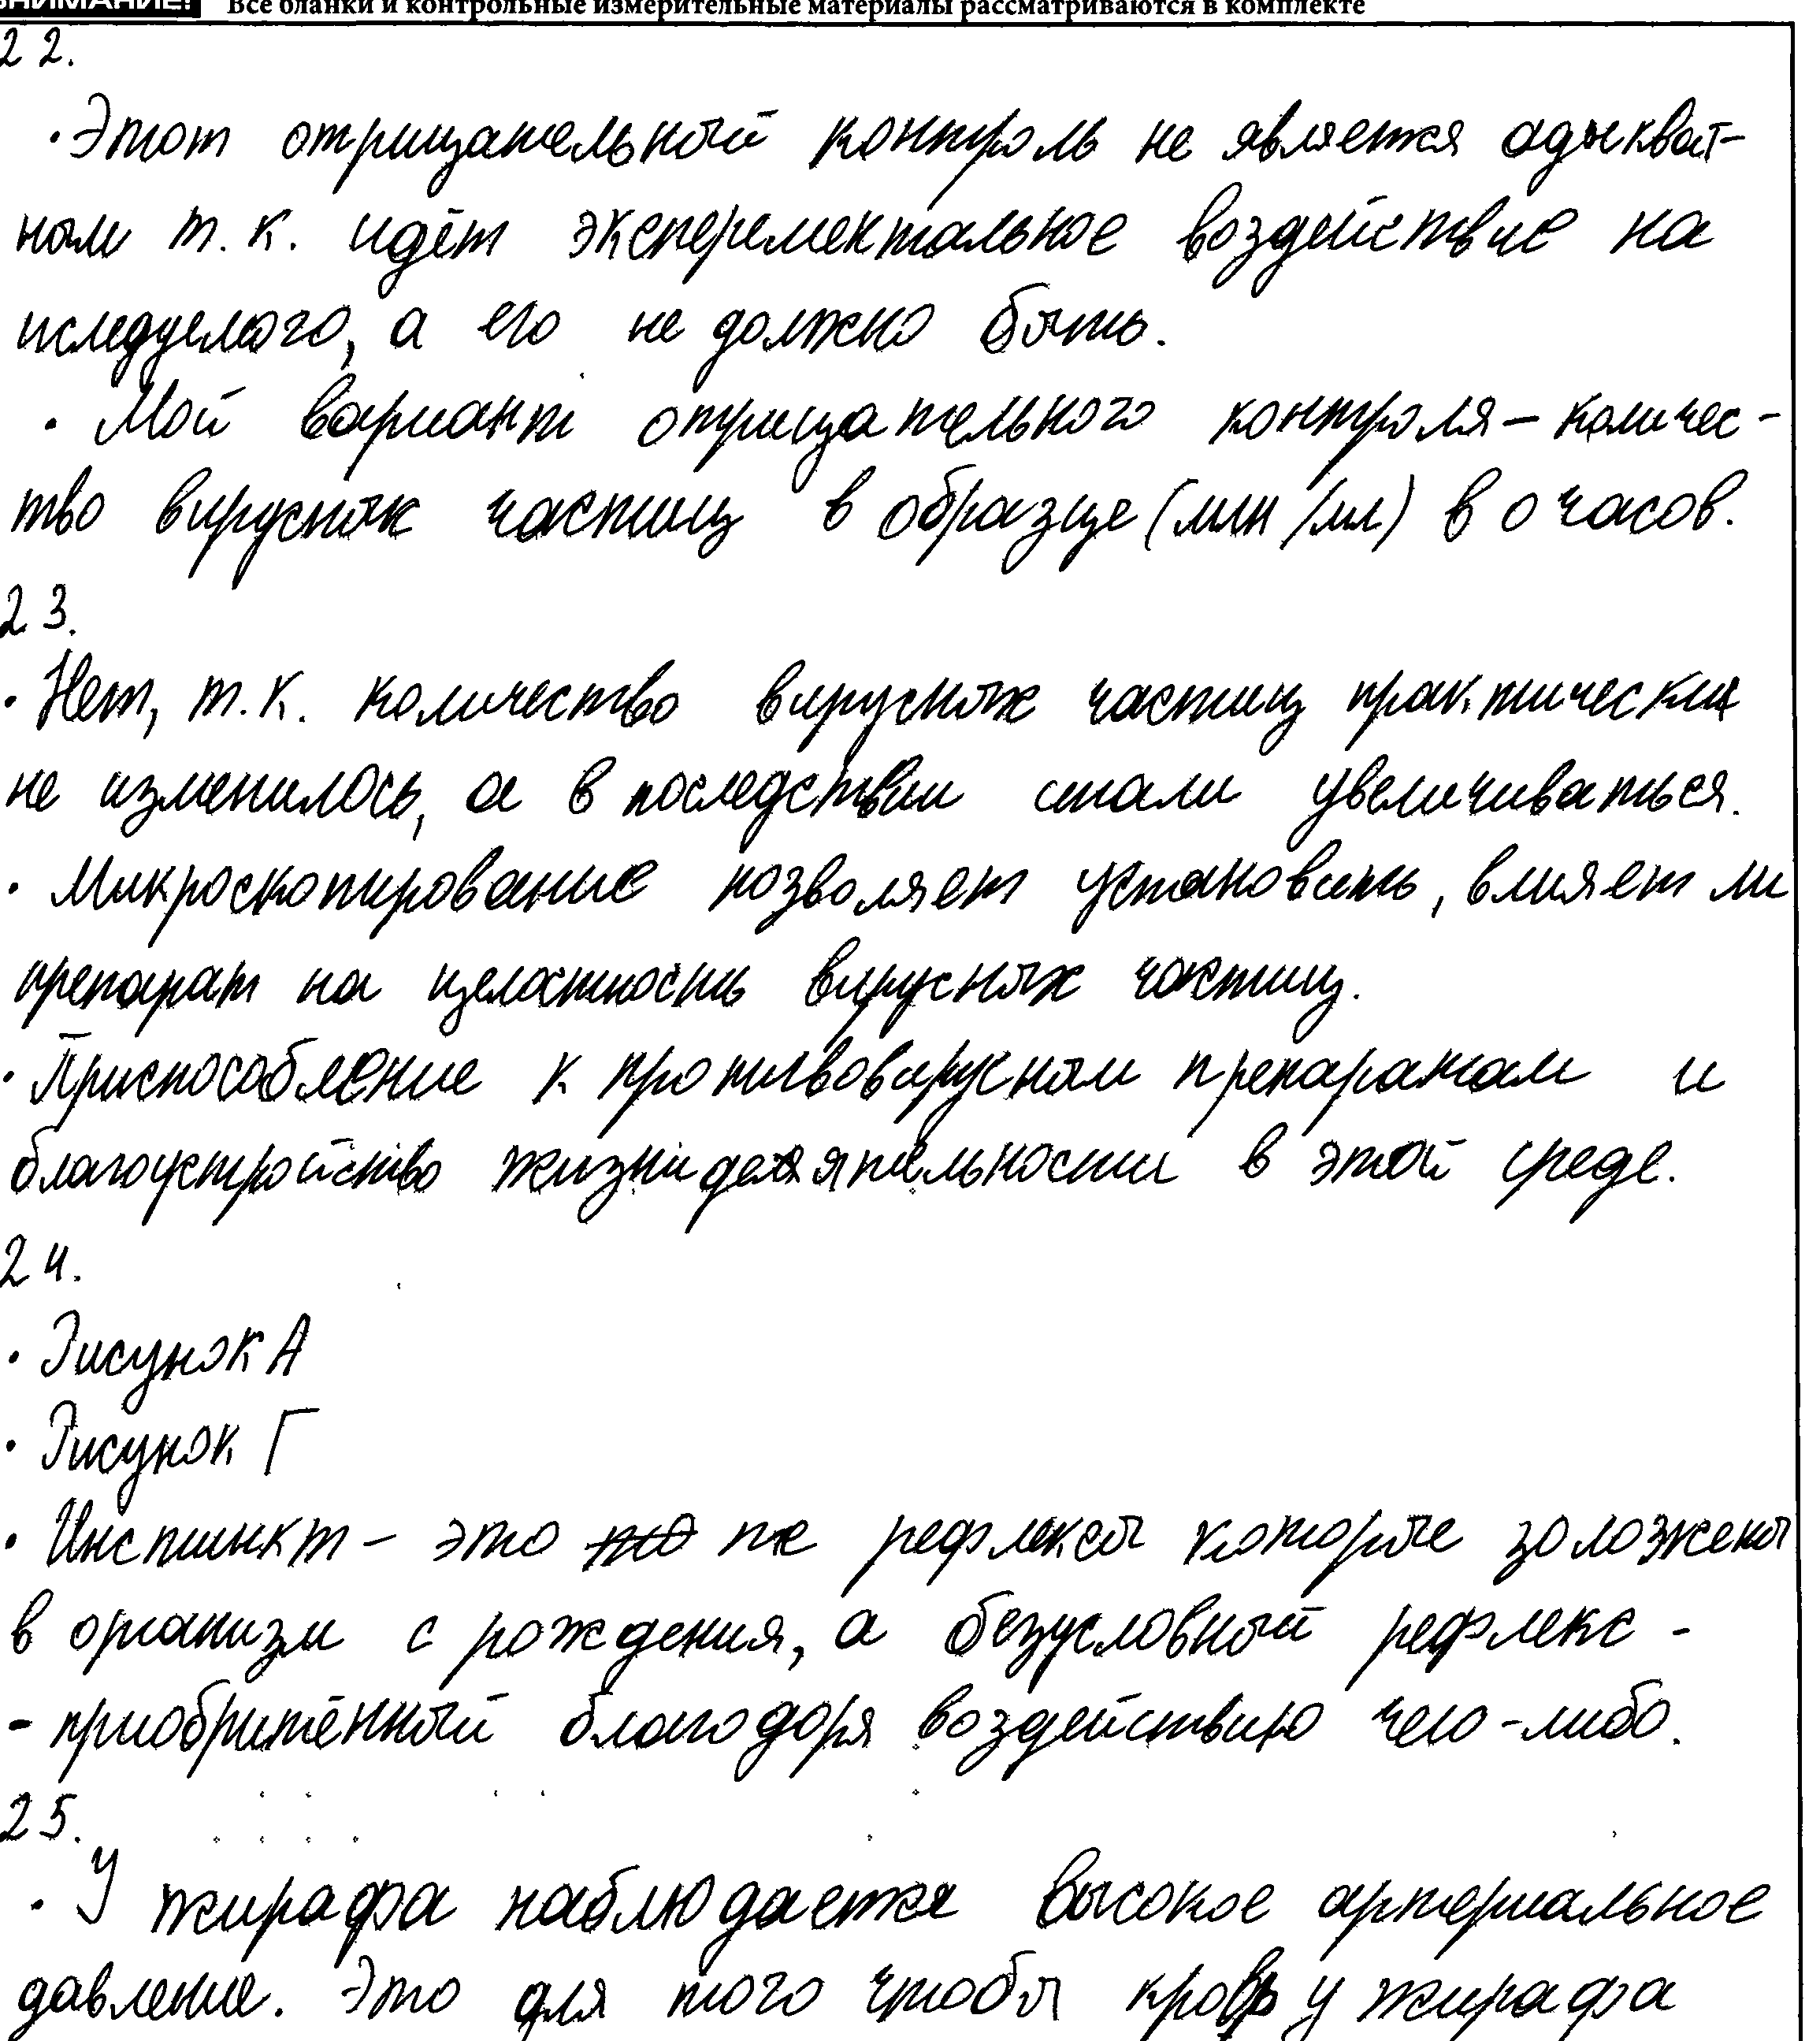 ВНИМАНИЕ! Все бланки и контрольные измерительные материалы рассматриваются в комплекте
22.
· Этот отрицательный контроль не является адыкват-
ным т.к. идёт эксперементальное воздействие на
иследуемого, а его не должно быть.
· Мой вариант отрицательного контроля – количес-
тво вирусных частиц в образце (млн/мл) в 0 часов.
23.
· Нет, т.к. количество вирусных частиц практически
не изменилось, а в последствии стали увеличиваться.
· Микроскопирование позволяет установить, влияет ли
препарат на целостность вирусных частиц.
· Приспособление к противовирусным препаратам и
благоустройство жизнидеятельности в этой среде.
24.
· Рисунок А
· Рисунок Г
· Инстинкт – это те рефлексы которые заложены
в организм с рождения, а безусловный рефлекс -
- приобритённый благодоря воздействию чего-либо.
25.
· У жирафа наблюдается высокое артериальное
давление. Это для того чтобы кровь у жирафа